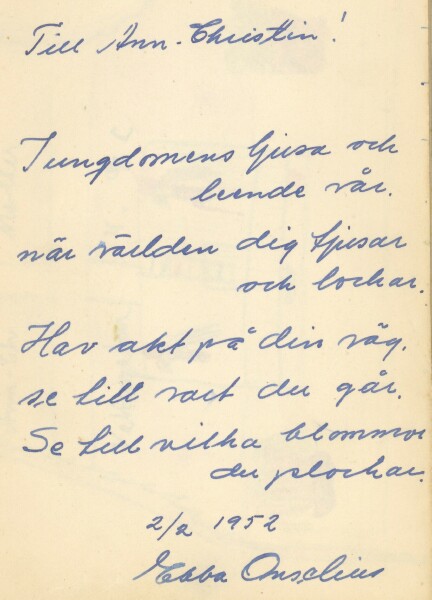 Till Ann-Christin!
I ungdomens ljusa och
leende vår.
när världen dig tjusar
och lockar.
Hav akt på din väg,
se till vart du går.
Se till vilka blommor
du plockar.
2/2 1952
Ebba Anselius